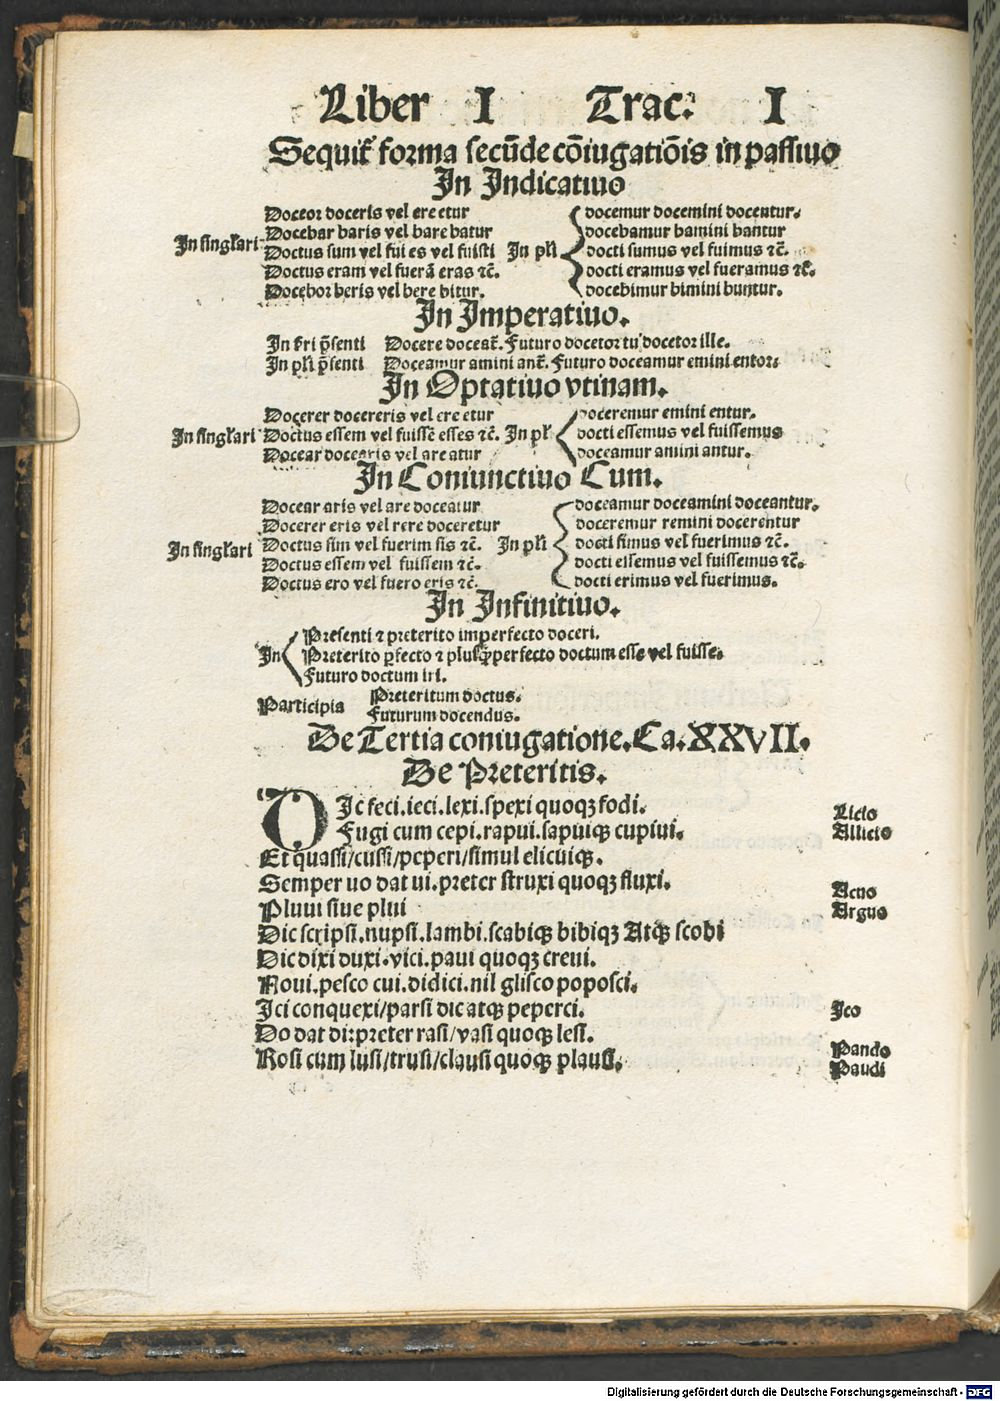 Liber I Trac: I
Sequit᷑ forma secūde cōiugatiōis in passiuo
In Indicatiuo
Doceor doceris vel ere etur
Docebar baris vel bare batur
In singl'ari Doctus sum vel fui es vel fuisti In pl'i
Doctus eram vel fuerā eras ⁊c̄.
Docebor beris vel bere bitur.
docemur docemini docentur.
docebamur bamini bantur
docti sumus vel fuimus ⁊c̄.
docti eramus vel fueramus ⁊c̄.
docebimur bimini buntur.
In Imperatiuo.
In s'ri p̄senti Docere doceat᷑. Futuro docetor tu docetor ille.
In pl'i p̄senti Doceamur amini ant᷑. Futuro doceamur emini entor.
In Optatiuo vtinam.
Docerer docereris vel ere etur
In singl'ari Doctus essem vel fuissē esses ⁊c̄. In pl'
Docear docearis vel are atur
doceremur emini entur.
docti essemus vel fuissemus
doceamur amini antur.
In Coniunctiuo Cum.
Docear aris vel are doceatur
Docerer eris vel rere doceretur
In singl'ari Doctus sim vel fuerim sis ⁊c̄. In pl'i
Doctus essem vel fuissem ⁊c̄.
Doctus ero vel fuero eris ⁊c̄.
doceamur doceamini doceantur.
doceremur remini docerentur
docti simus vel fuerimus ⁊c̄.
docti essemus vel fuissemus ⁊c̄.
docti erimus vel fuerimus.
In Infinitiuo.
Presenti ⁊ preterito imperfecto doceri.
In Preterito ꝑfecto ⁊ plusq̄ꝑperfecto doctum esse vel fuisse.
Futuro doctum iri.
Participia Preteritum doctus.
Futurum docendus.
De Tertia coniugatione. Ca. XXVII.
De Preteritis.
DIc feci.ieci.lexi.spexi quoqꝫ fodi.
Licio
Fugi cum cepi.rapui.sapuiqꝫ cupiui.
Allicio
Et quassi/cussi/peperi/simul elicuiqꝫ.
Semper uo dat ui.preter struxi quoqꝫ fluxi.
Acuo
Pluui siue plui
Arguo
Dic scripsi.nupsi.lambi.scabiqꝫ bibiqꝫ Atqꝫ scobi
Dic dixi duxi.vici.paui quoqꝫ creui.
Noui.pesco cui.didici.nil glisco poposci.
Ici conquexi/parsi dic atqꝫ peperci.
Ico
Do dat di:preter rasi/vasi quoqꝫ lesi.
Rosi cum lusi/trusi/clausi quoqꝫ plausi.
Pando
Pandi
Digitalisierung gefördert durch die Deutsche Forschungsgemeinschaft - DFG